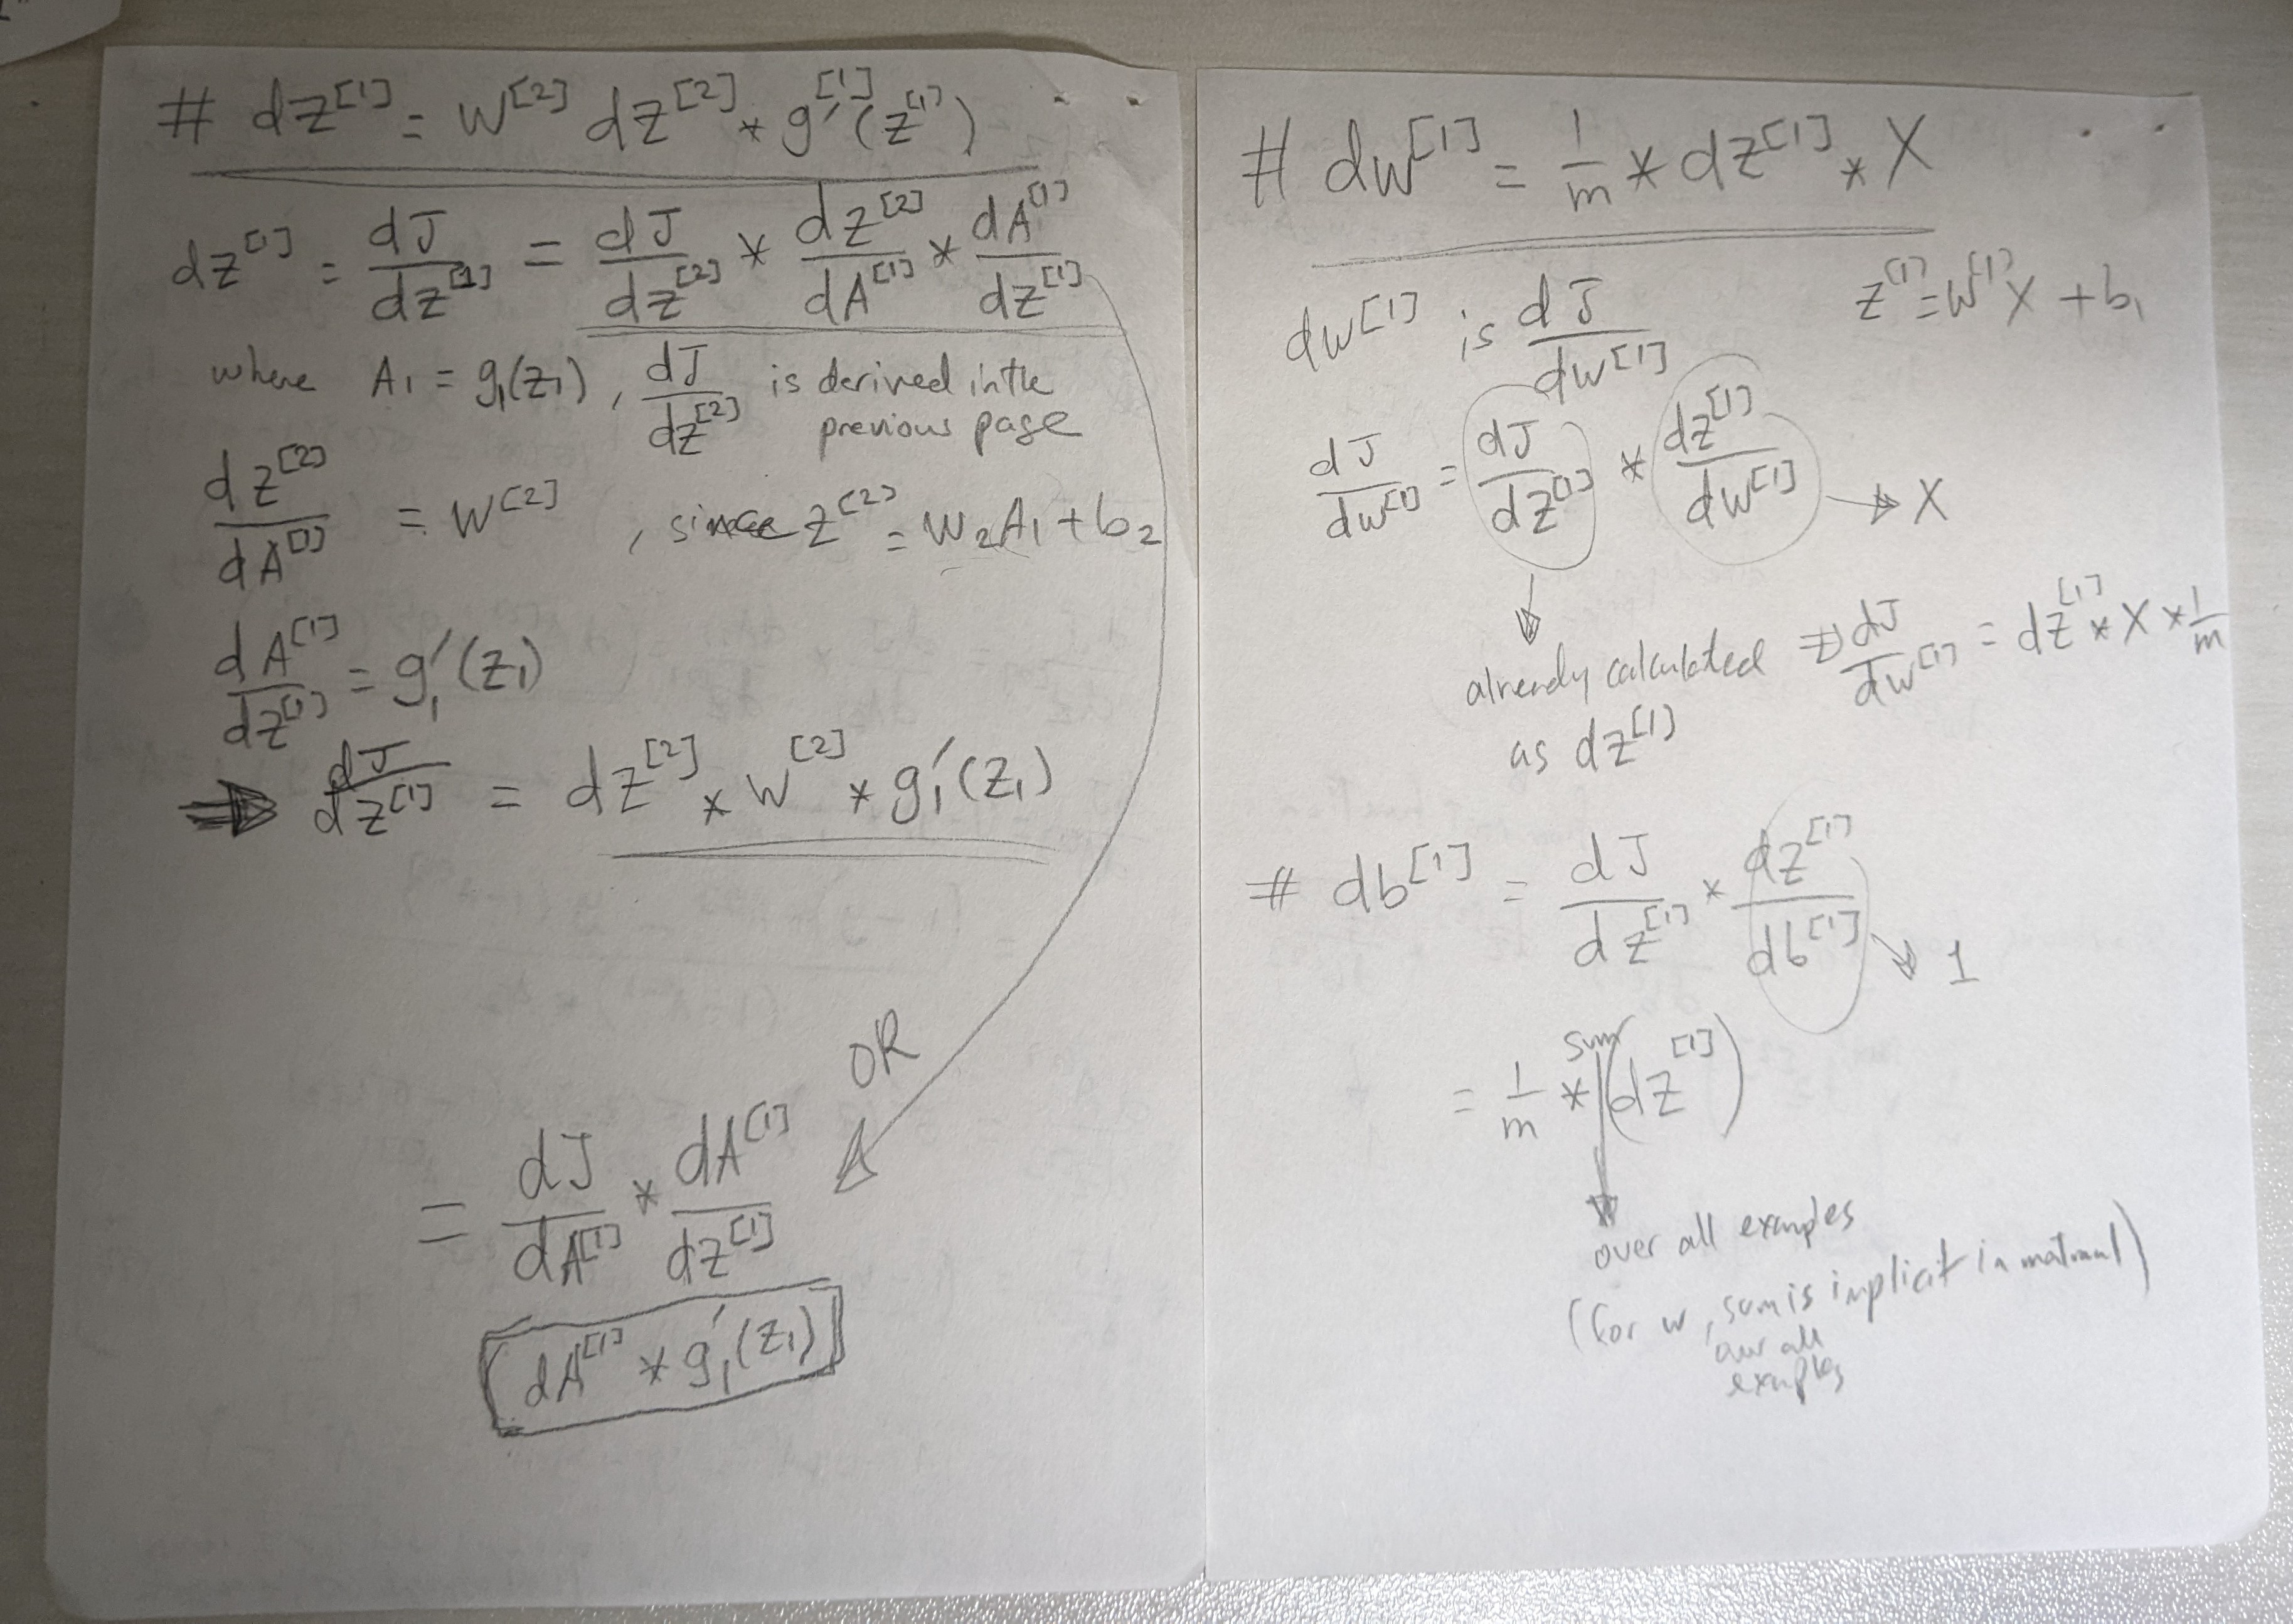 # dz[1] = W[2] dz[2] * g'[1](z[1])
dz[1] = dJ/dz[1] = dJ/dz[2] * dz[2]/dA[1] * dA[1]/dz[1]
where A1 = g1(z1), dJ/dz[2] is derived in the
previous page
dz[2]/dA[1] = W[2] , since z[2] = W2A1 + b2
dA[1]/dz[1] = g1'(z1)
⇒ dJ/dz[1] = dz[2] * W[2] * g1'(z1)
OR
= dJ/dA[1] * dA[1]/dz[1]
dA[1] * g1'(z1)
# dW[1] = 1/m * dz[1] * X
z[1] = W[1]X + b1
dW[1] is dJ/dW[1]
dJ/dW[1] = dJ/dz[1] * dz[1]/dW[1] → X
already calculated ⇒ dJ/dW[1] = dz[1] * X * 1/m
as dz[1]
# db[1] = dJ/dz[1] * dz[1]/db[1] → 1
sum
= 1/m * (dz[1])
over all examples
(for w, sum is implicit in matmul)
over all
examples